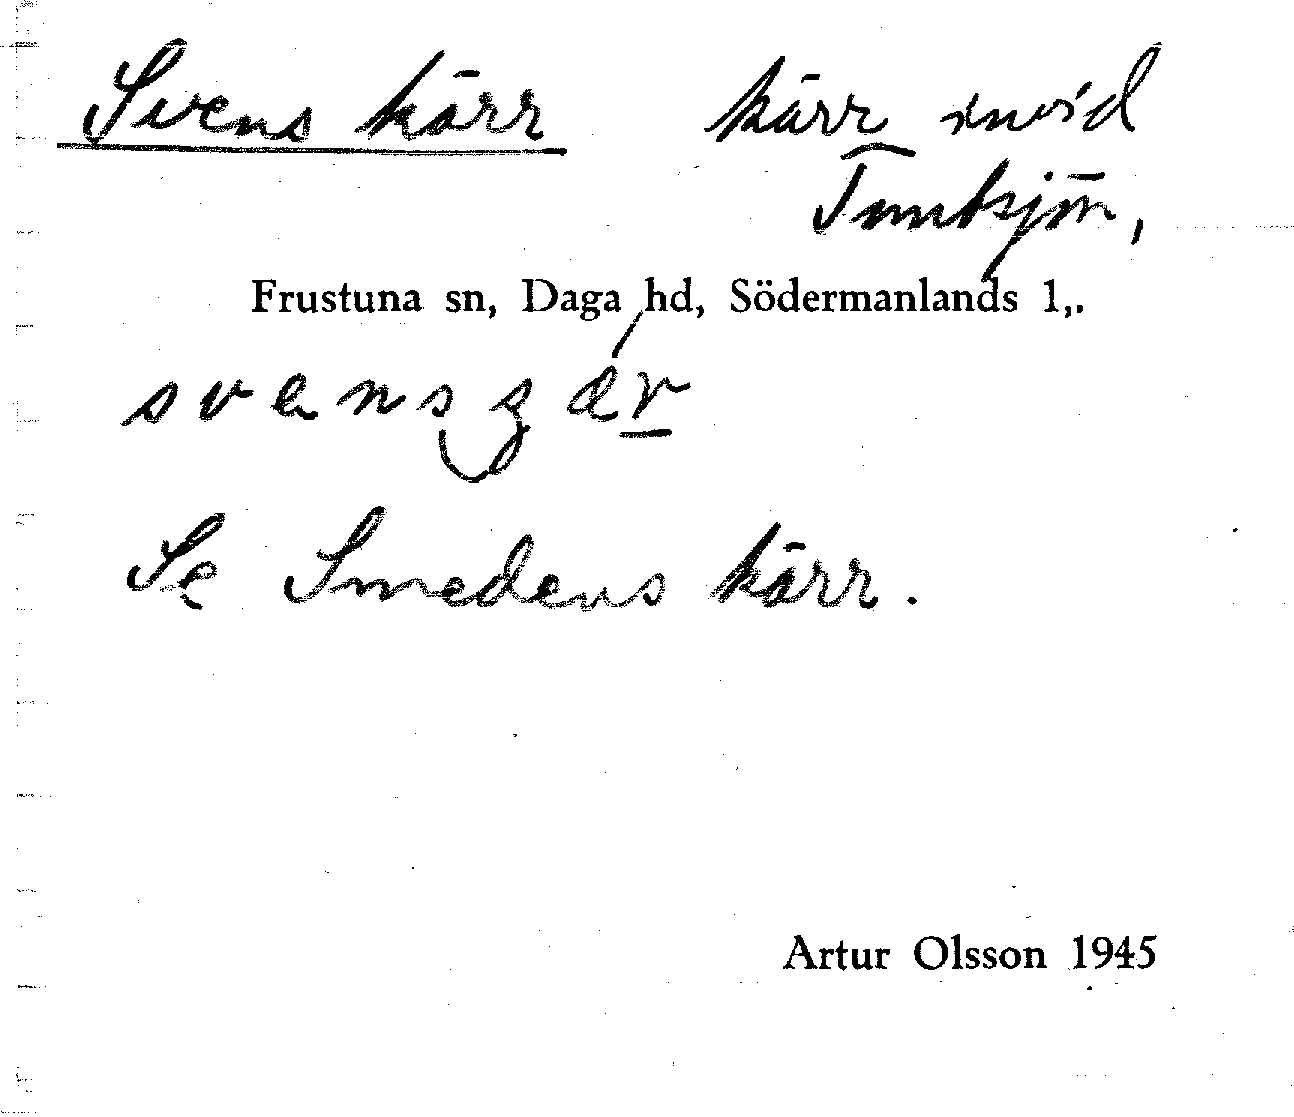 Svens kärr kärr invid
Frustuna sn, Daga hd, Södermanlands l,.
svens
Se Smedens kärr.
Artur Olsson 1945